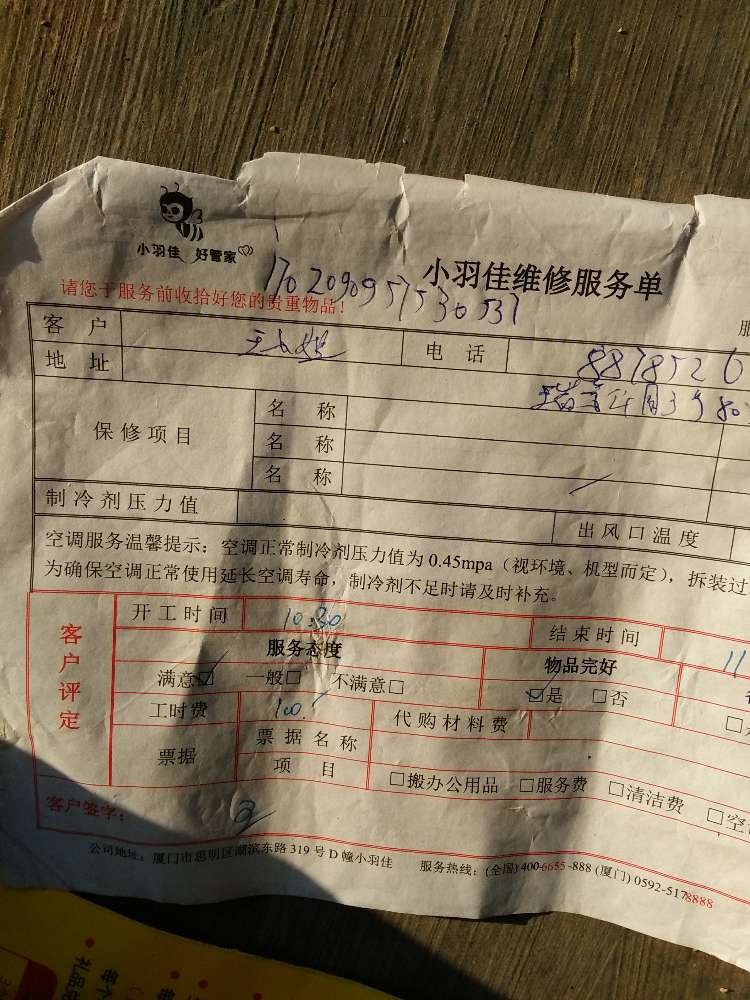 小羽佳 好管家
小羽佳维修服务单
请您于服务前收拾好您的贵重物品!
客户 电话 8878526
地址
保修项目 名称
名称
名称
制冷剂压力值 出风口温度
空调服务温馨提示:空调正常制冷剂压力值为0.45mpa(视环境、机型而定),拆装过
为确保空调正常使用延长空调寿命,制冷剂不足时请及时补充。
客户评定
开工时间 10:30 结束时间 11
服务态度 物品完好
满意☑ 一般□ 不满意□ ☑是 □否
工时费 100 代购材料费
票据 票据名称
项目 □搬办公用品 □服务费 □清洁费 □空
客户签字:
公司地址:厦门市思明区湖滨东路319号D幢小羽佳 服务热线:(全国)400-6655-888(厦门)0592-5178888